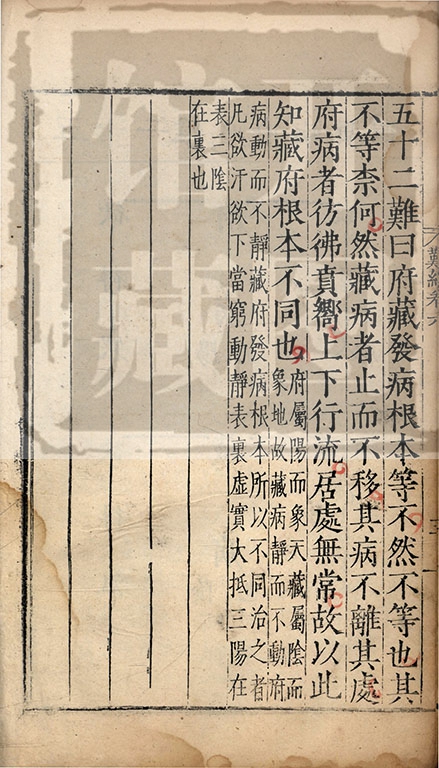 難經卷六
五十二難曰府藏發病根本等不然不等也其
不等柰何然藏病者止而不移其病不離其處
府病者彷彿賁嚮上下行流居處無常故以此
知藏府根本不同也
府屬陽而象天藏屬陰而
象地故藏病靜而不動府
病動而不靜藏府發病根本所以不同治之者
凡欲汗欲下當窮動靜表裏虛實大抵三陽在
表三陰
在裏也
馆藏